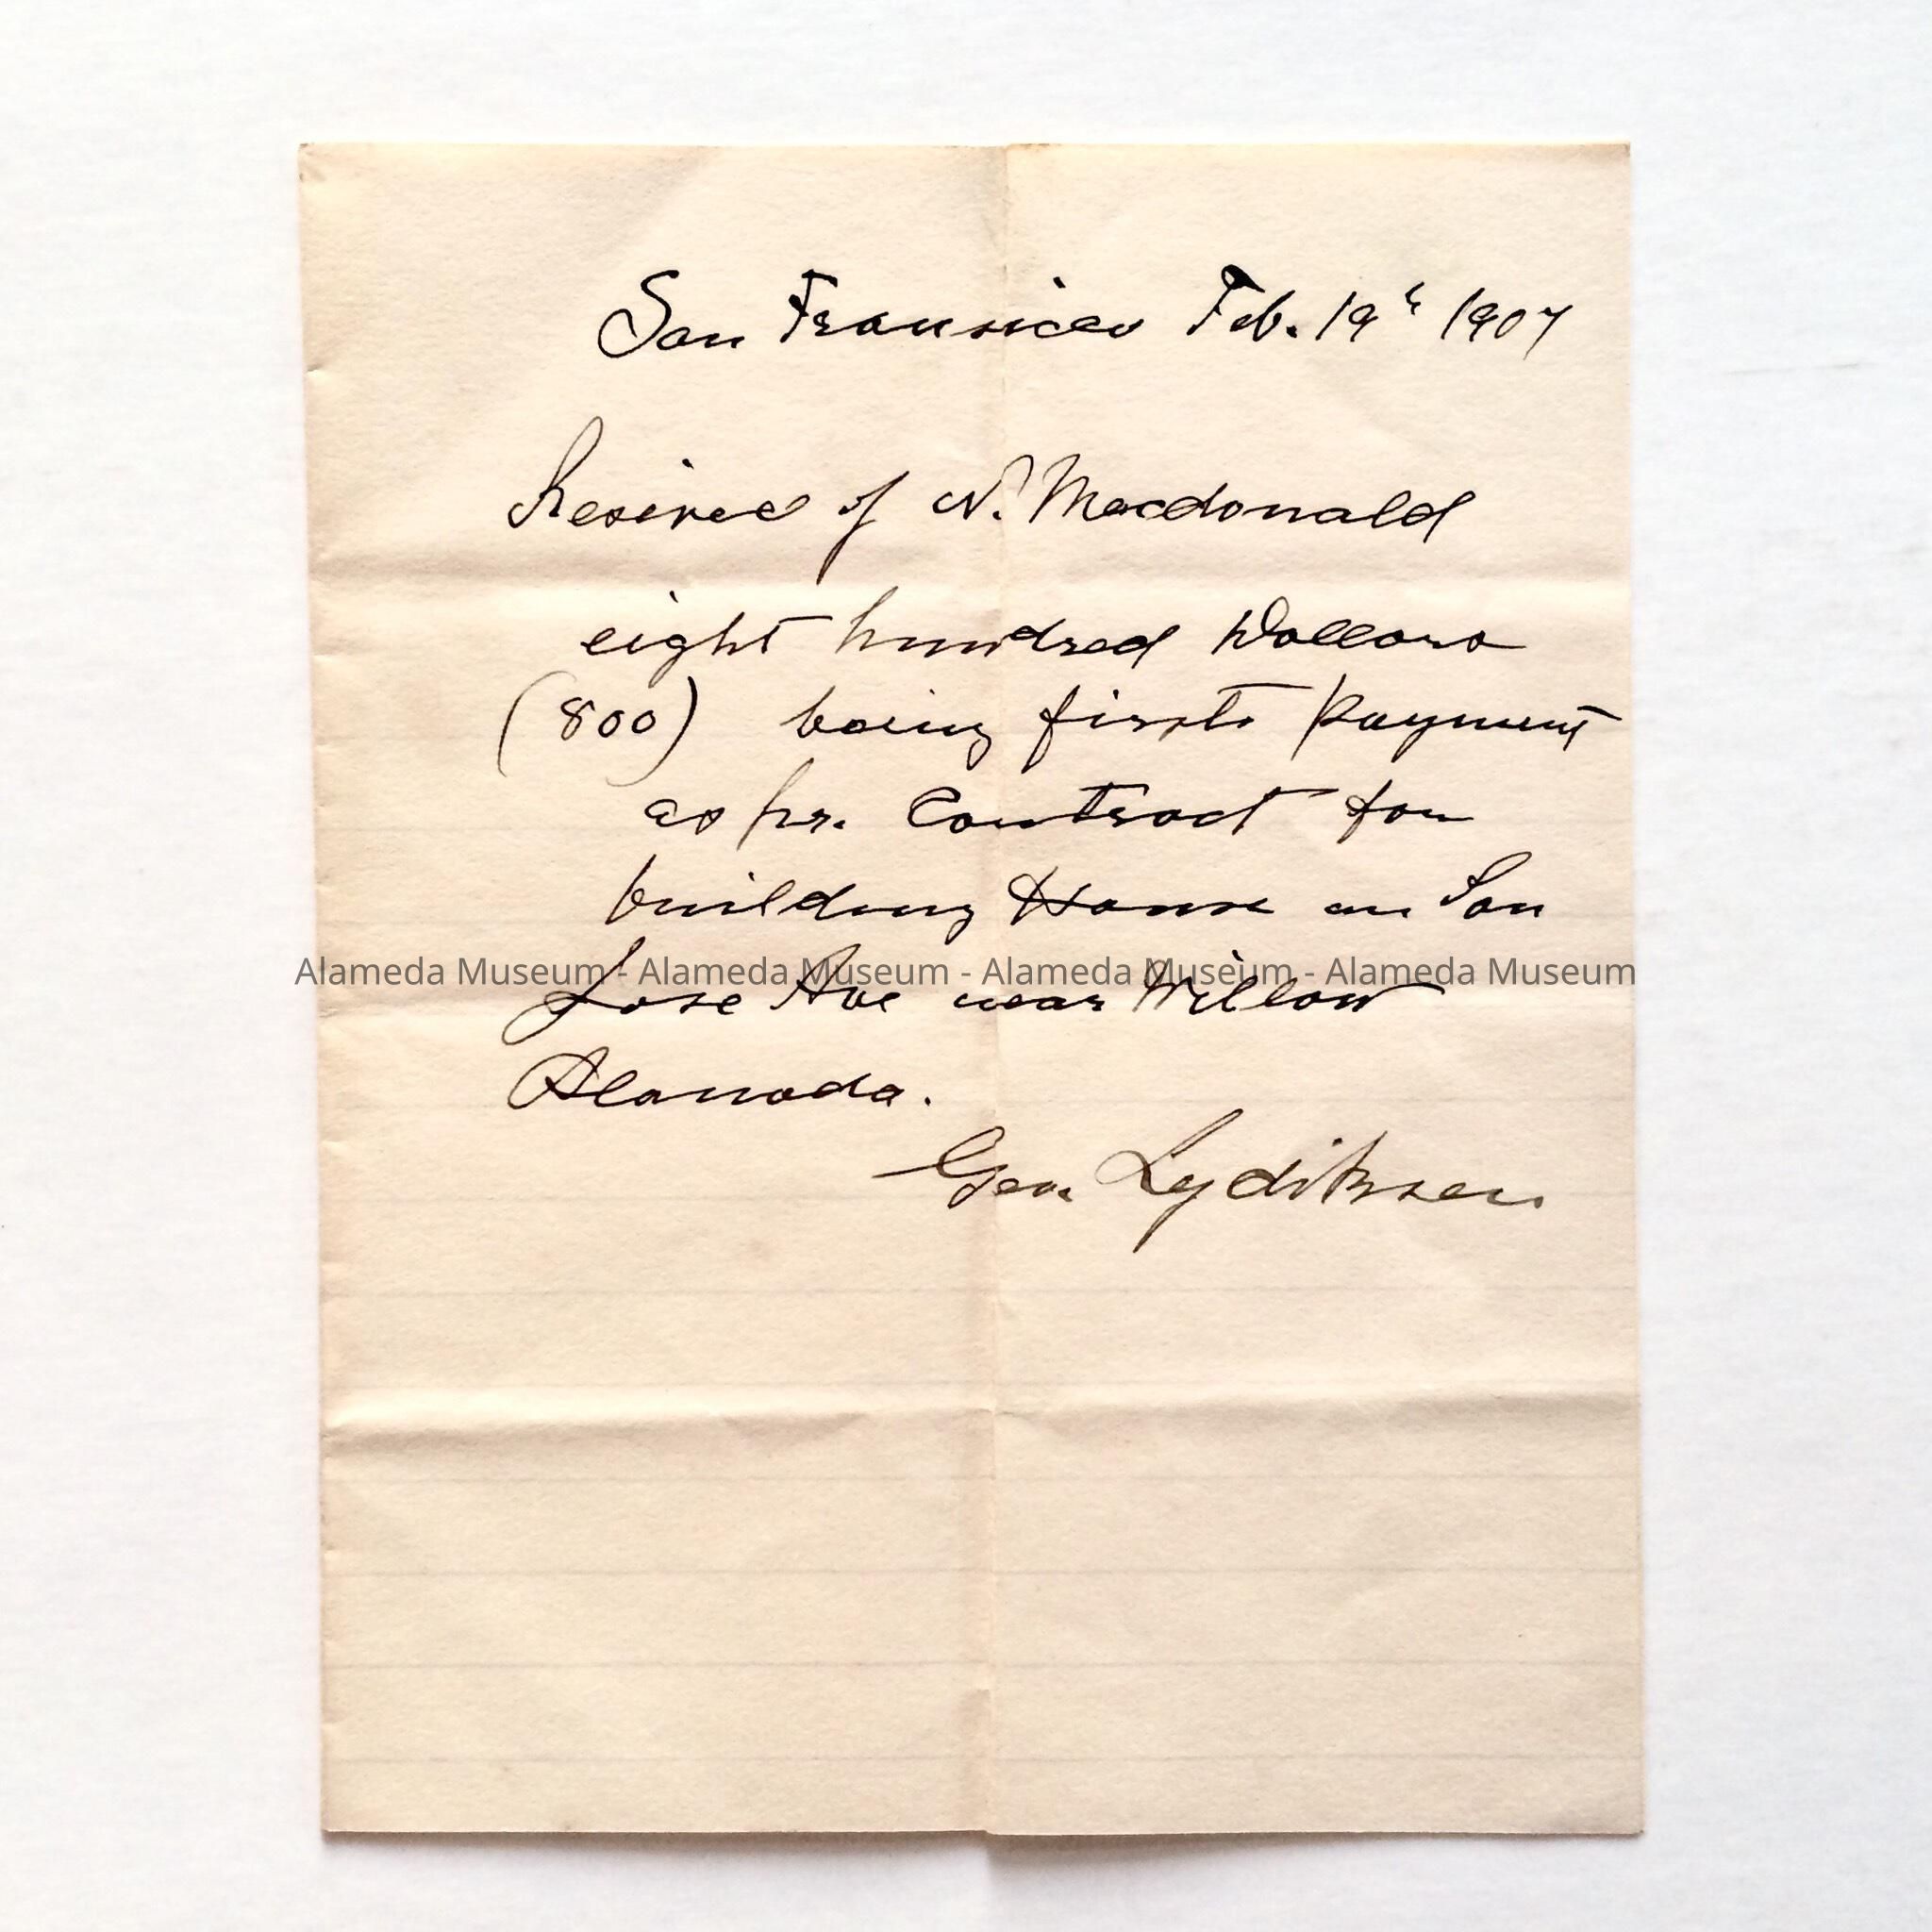 San Fransicco Feb. 19th 1907
Resived of N. Macdonald
eight hundred Dollars
(800) being first Payment
as pr. Contract for
building House on San
Alameda Museum - Alameda Museum - Alameda Museum - Alameda Museum
Jose Ave near Willow
Alameda.
Geo. Lydiksen.